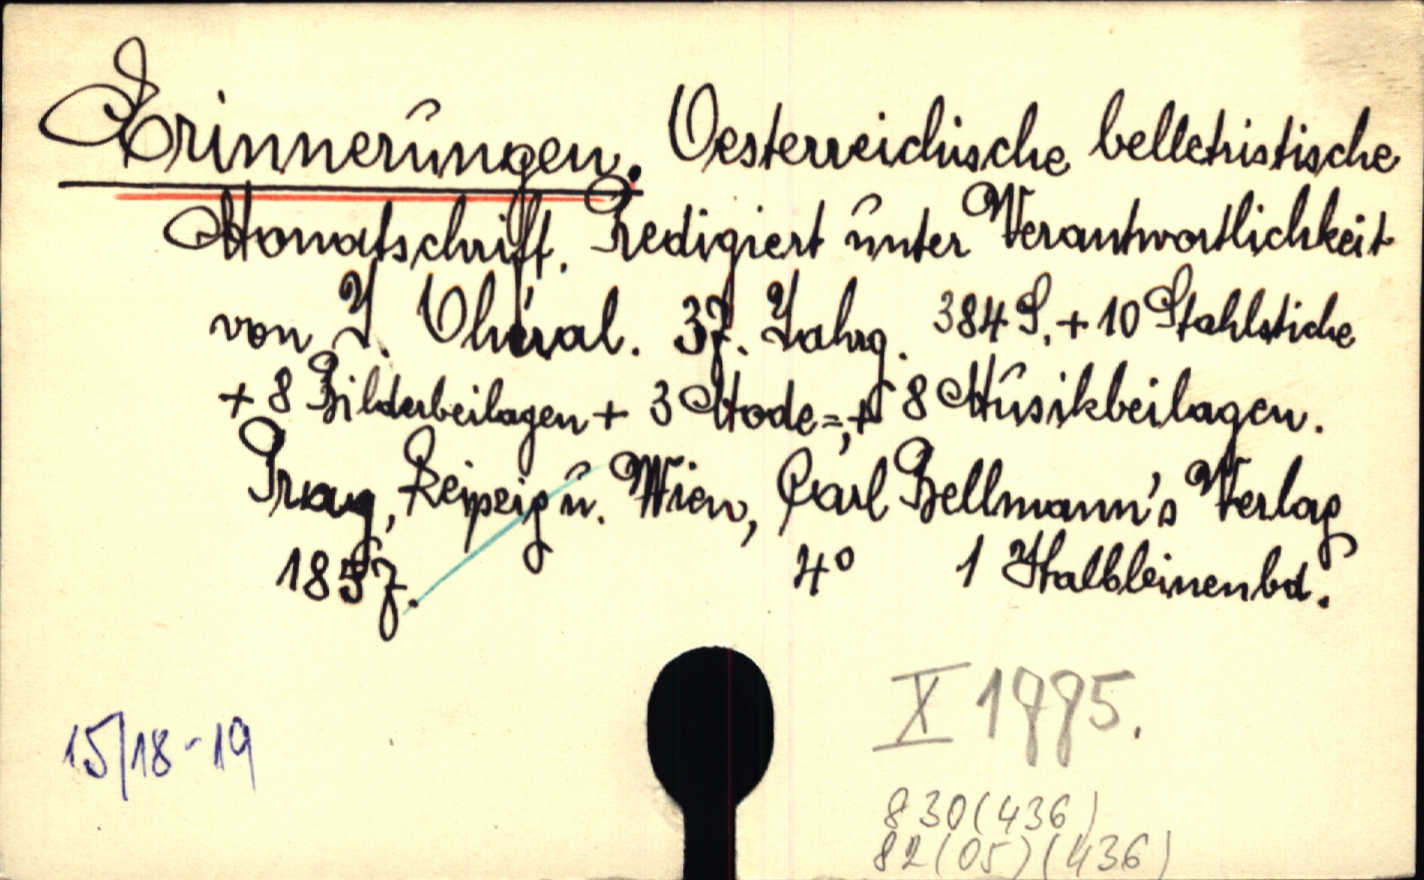 Erinnerungen. Oesterreichische belletristische
Monatsschrift. Redigiert unter Verantwortlichkeit
von J. Umlauf. 37. Jahrg. 384 S. + 10 Stahlstiche
+ 8 Bilderbeilagen + 3 Mode=, + 8 Musikbeilagen.
Prag, Leipzig u. Wien, Carl Bellmann's Verlag
1857. 4° 1 Halbleinenbd.
X 1775.
15/18-19
830(436)
82(05)(436)